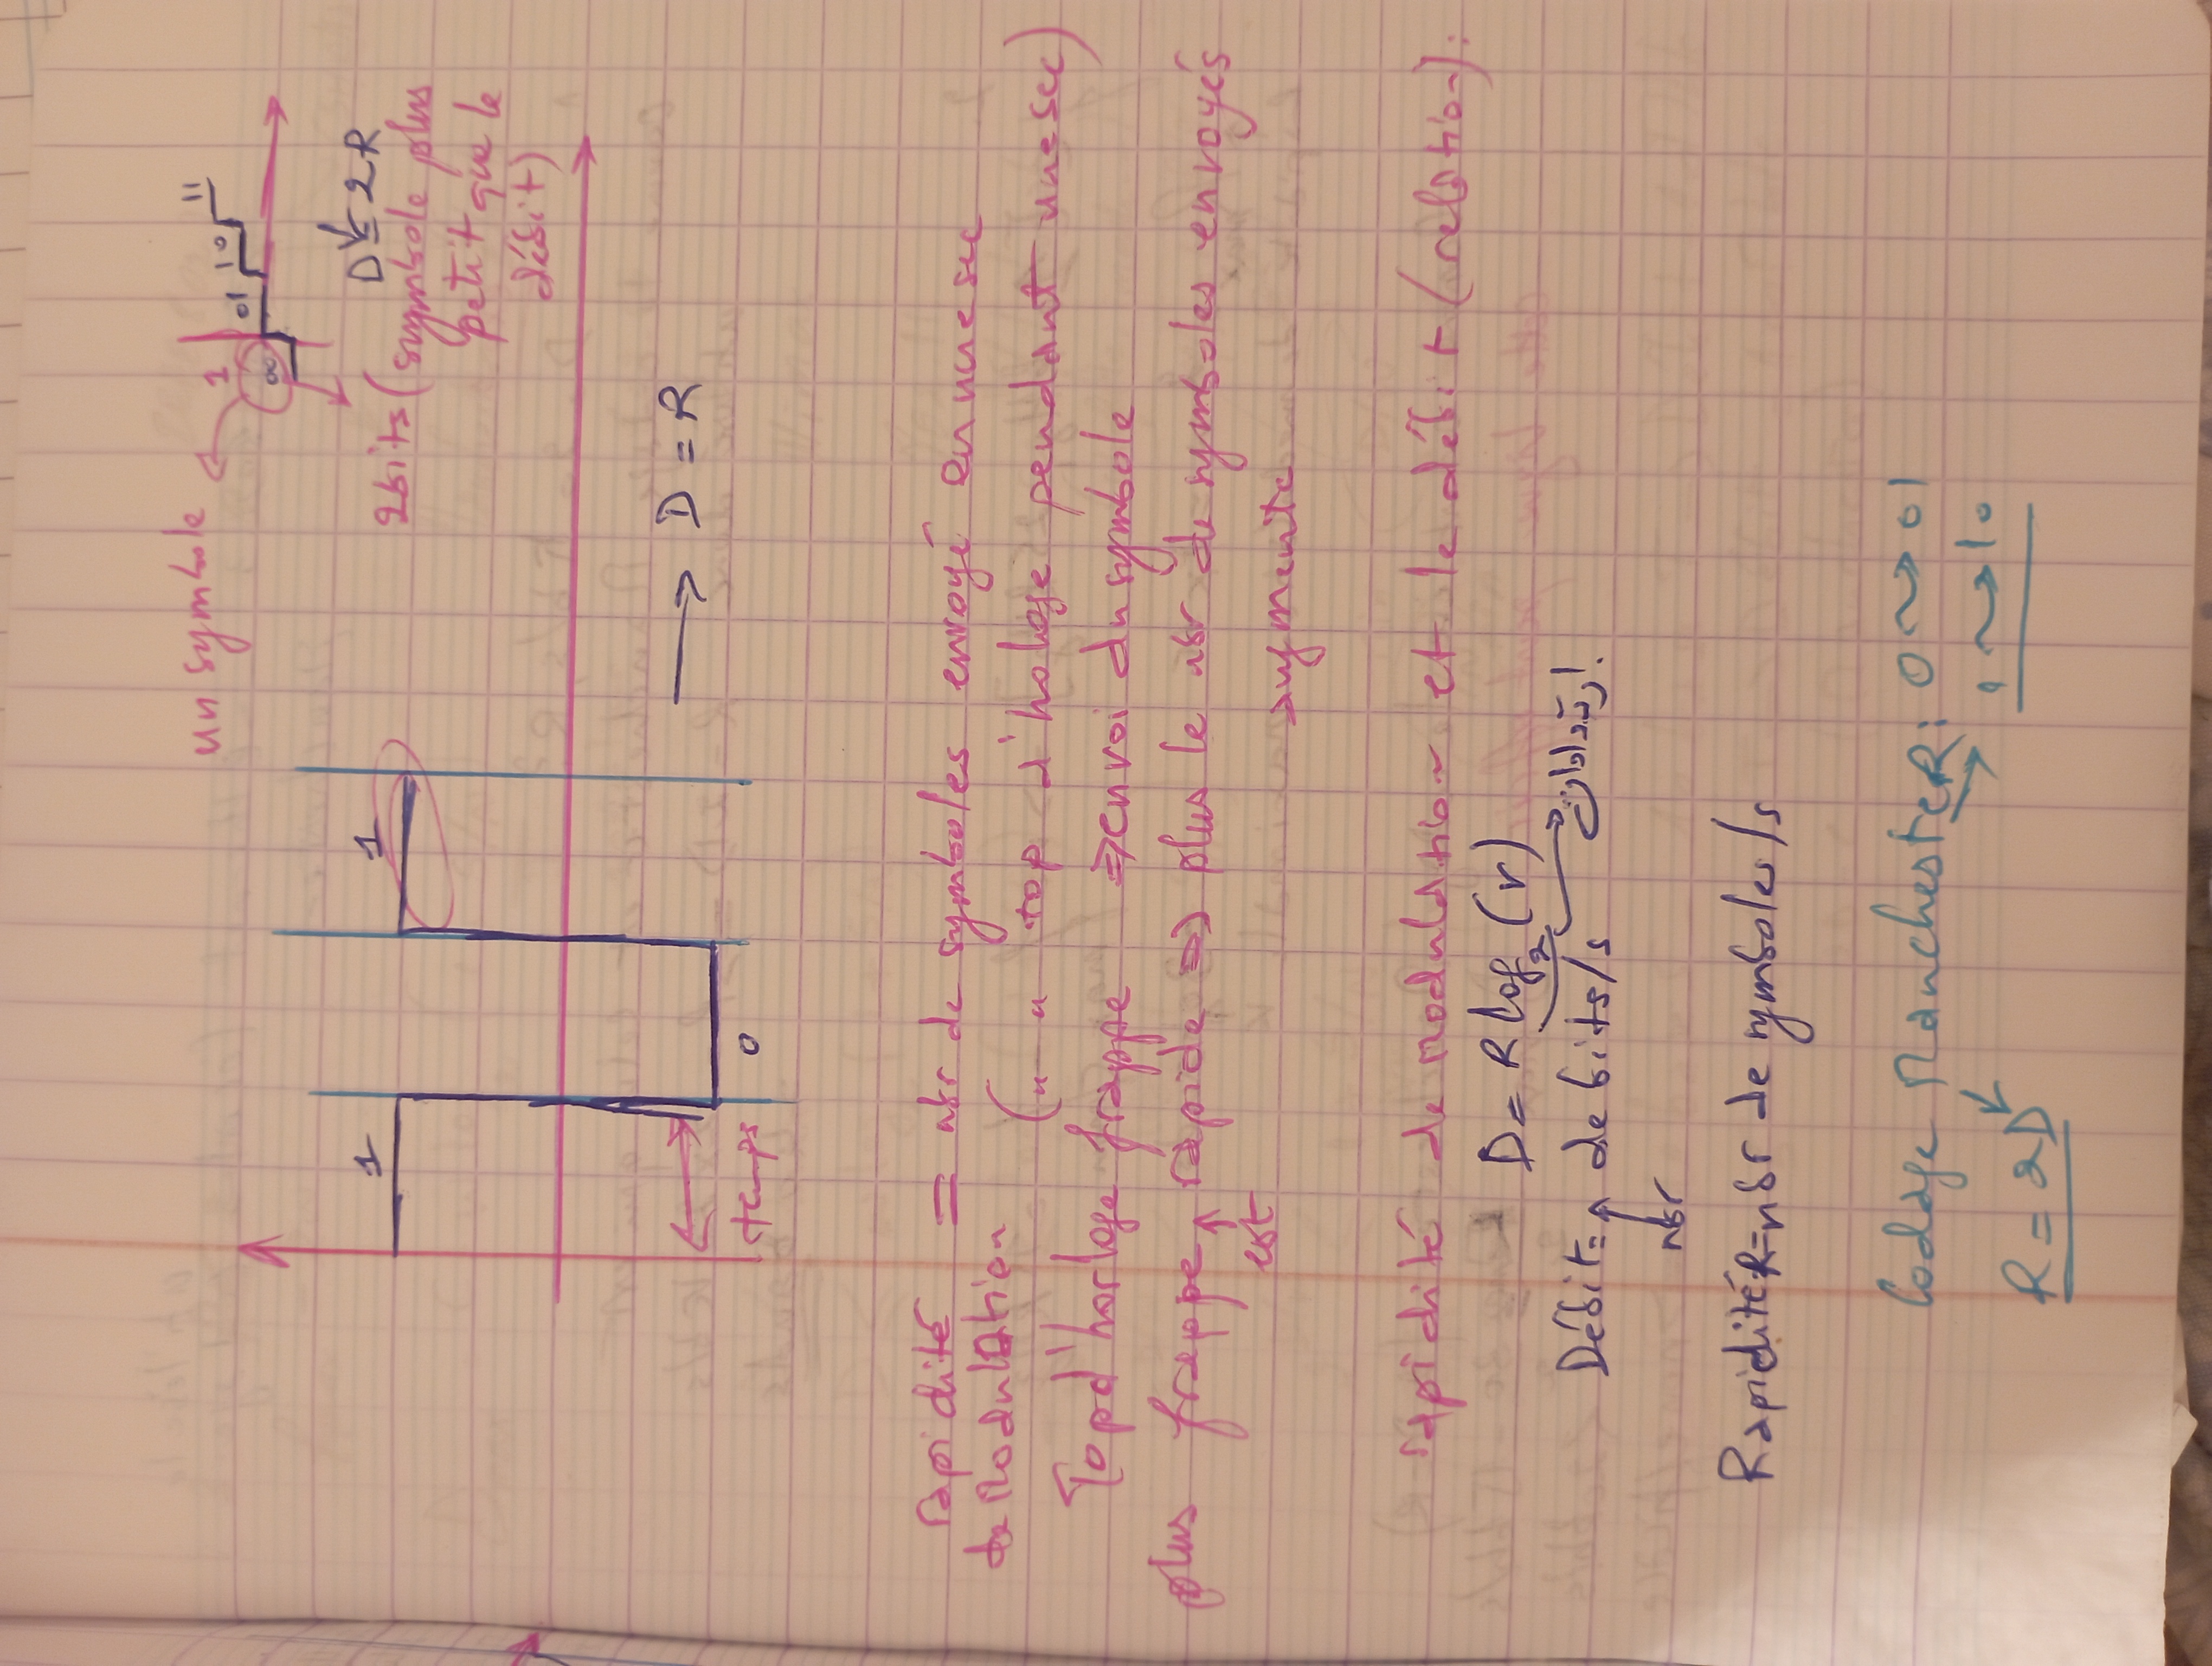 un symbole
1
00
01
10
11
D = 2R
2bits (symbole plus
petit que le
débit)
1
0
1
temps
→ D = R
rapidité = nbr de symboles envoyé en une sec
de Modulation
(" " top d'hologe pendant une sec)
Top d'horloge frappe ⇒ envoi du symbole
plus frappe est rapide ⇒ plus le nbr de symboles envoyés
augmente
rapidité de modulation et le débit (relation):
D = R log₂ (r)
Débit = nbr de bits/s
Rapidité R = nbr de symboles/s
Codage ManchesteR: 0 → 01
1 → 10
R = 2D